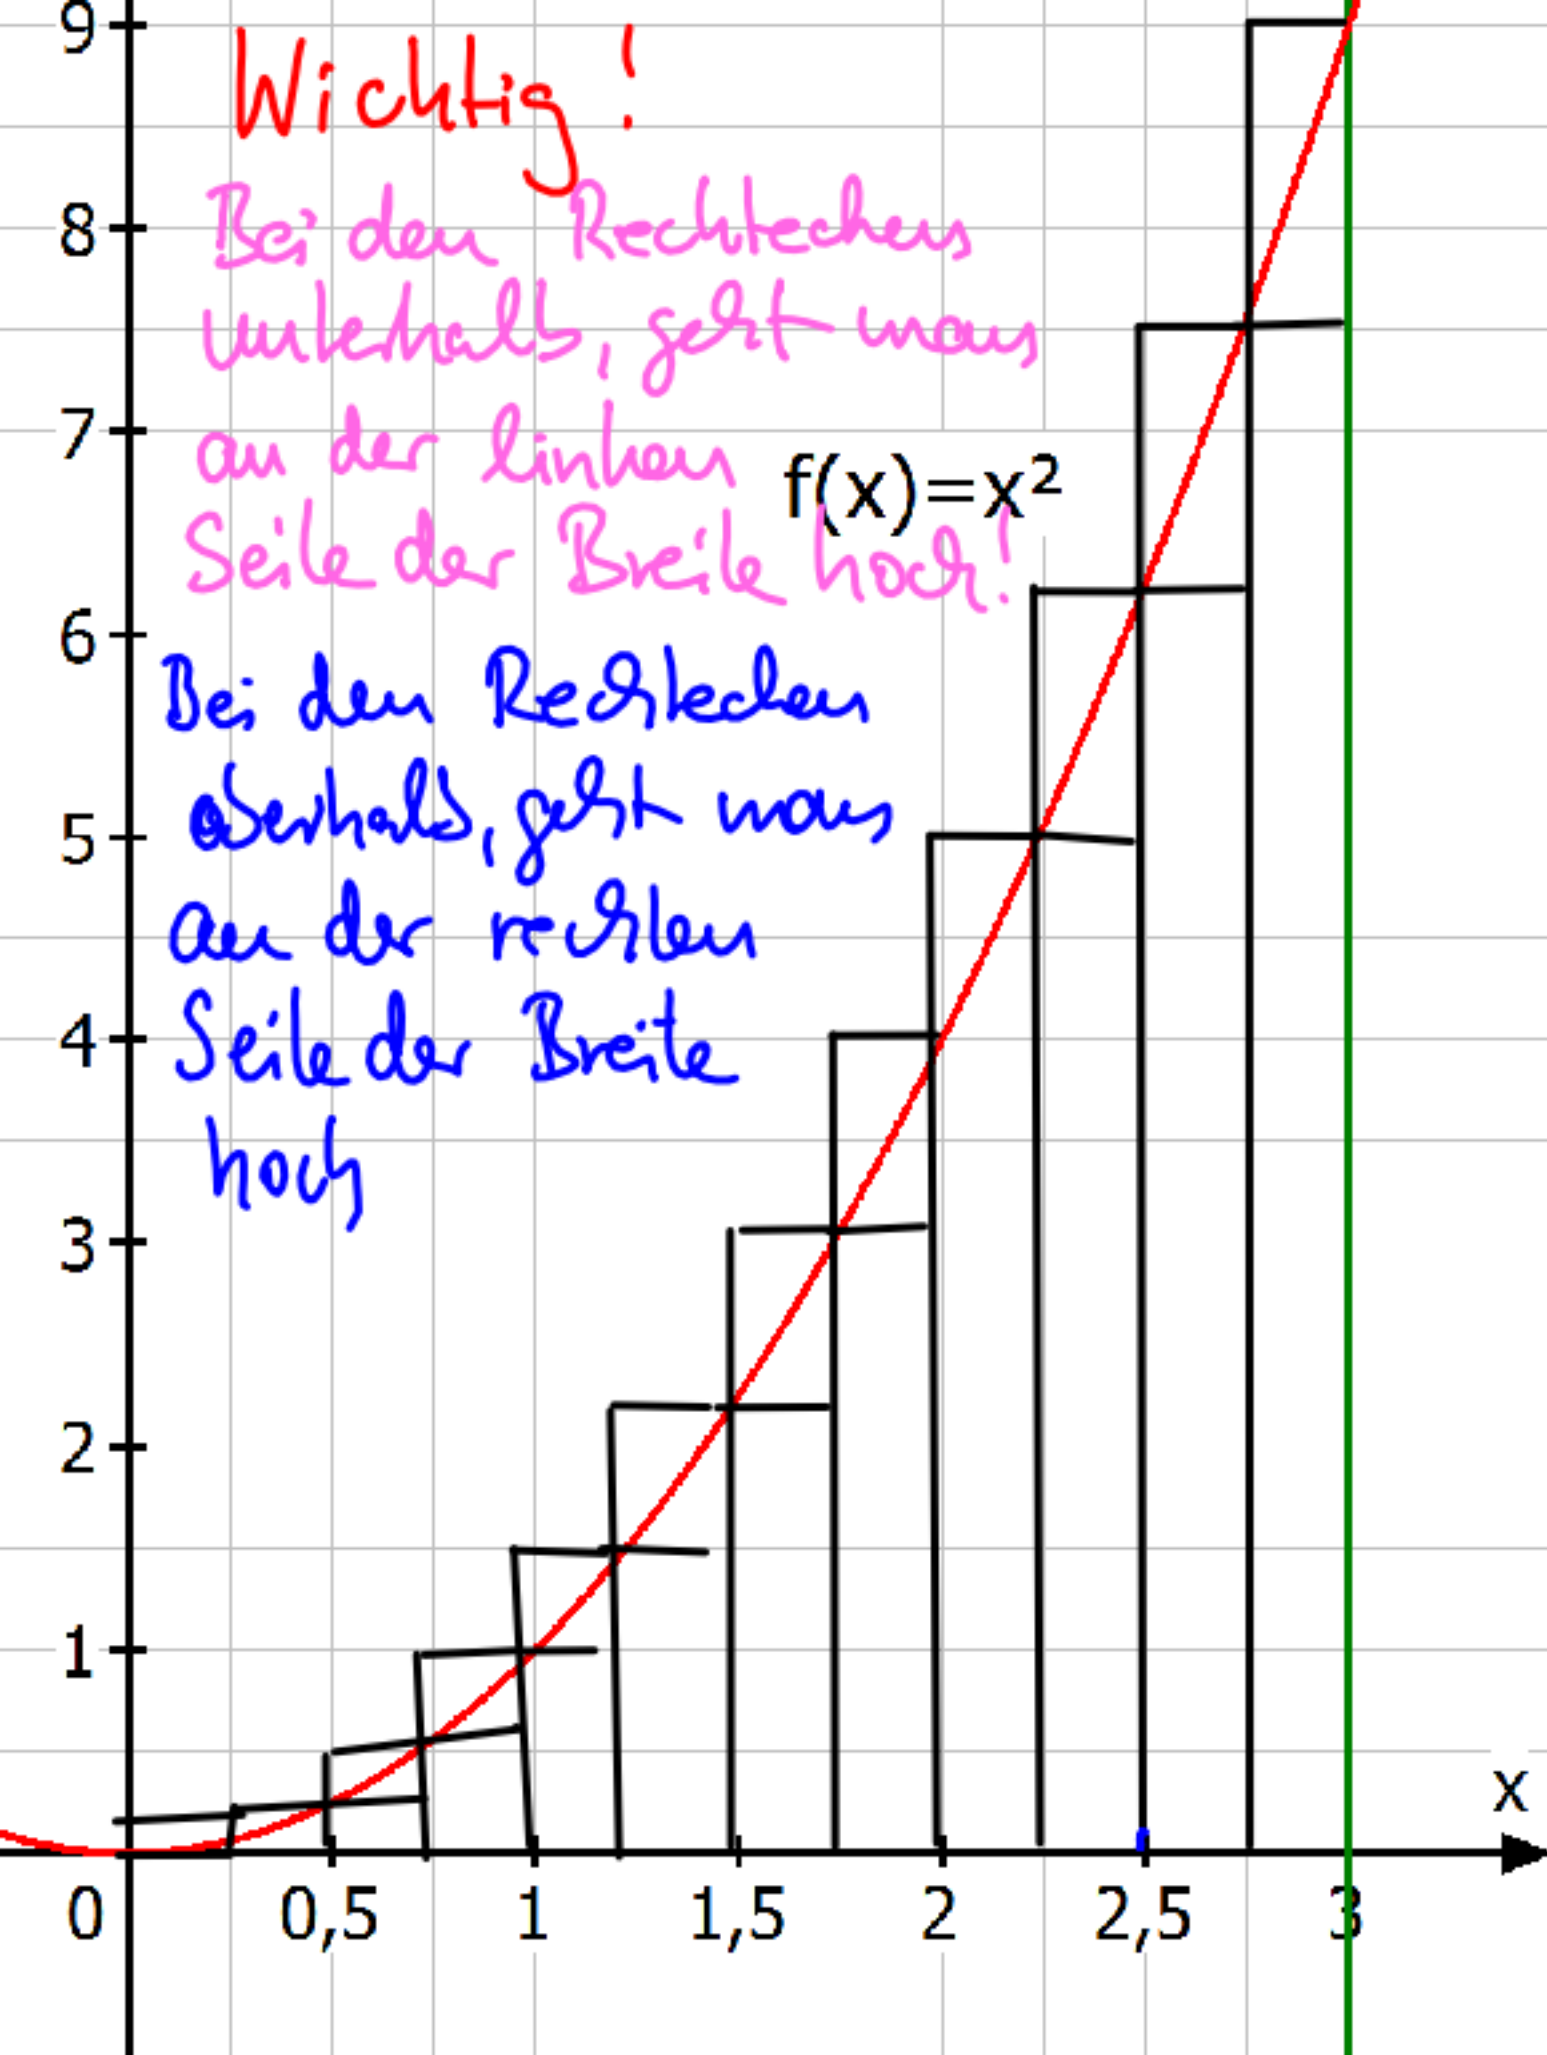 9
Wichtig!
8
Bei den Rechtecken
unterhalb, geht man
7
an der linken
f(x)=x²
Seite der Breite hoch!
6
Bei den Rechtecken
oberhalb, geht man
5
an der rechten
Seite der Breite
4
hoch
3
2
1
x
0 0,5 1 1,5 2 2,5 3